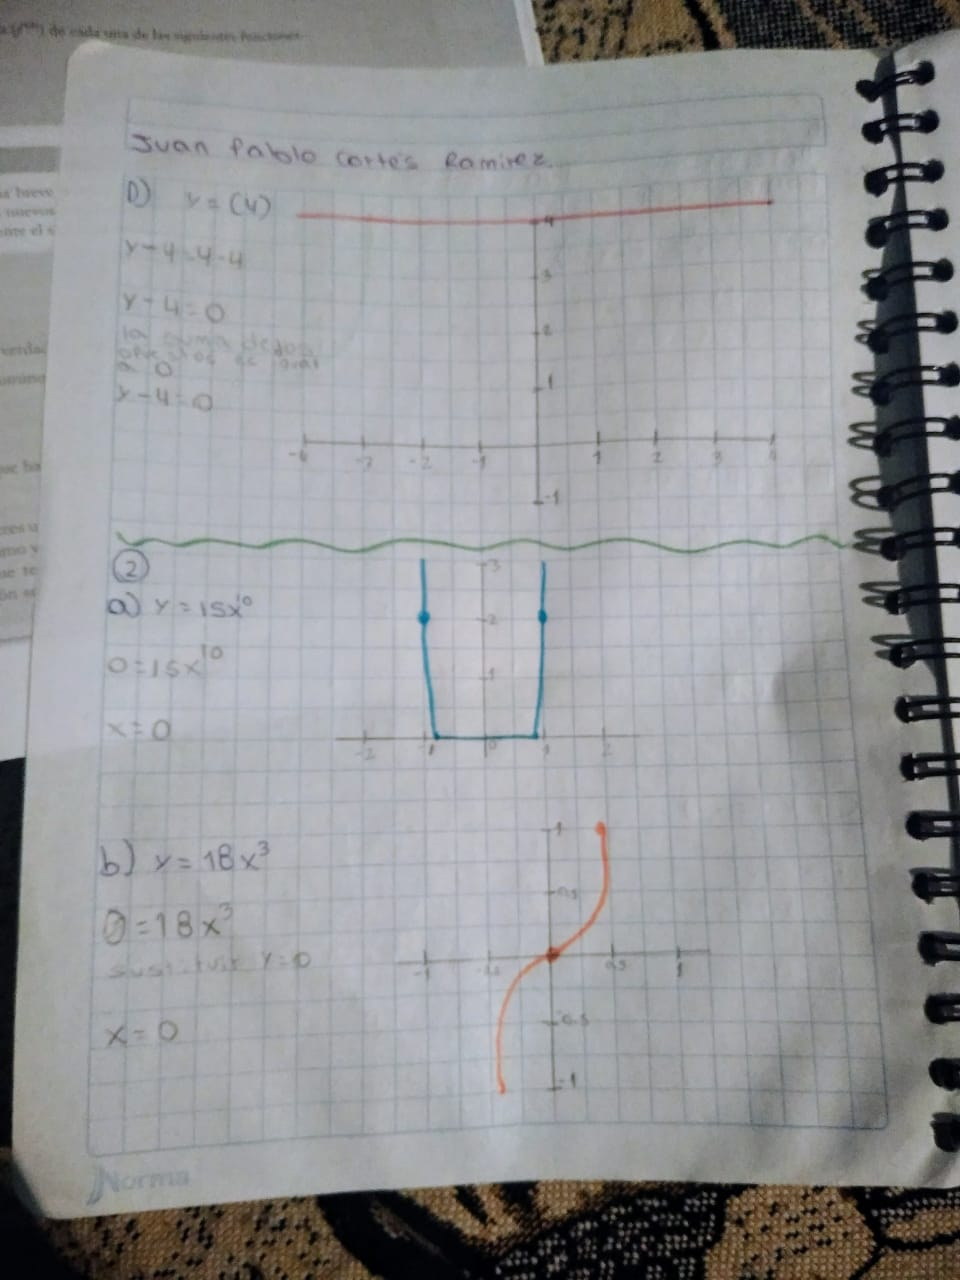 de cada una de las siguientes funciones
Juan Pablo Cortés Ramirez.
D) y = (4)
y-4=4-4
y-4=0
la suma de dos
opuestos es igual
a 0
y-4=0
4
3
2
1
-4 -3 -2 -1 1 2 3 4
-1
2
a) y = 15x¹⁰
0=15x¹⁰
x=0
3
2
1
-2 -1 0 1 2
b) y = 18x³
0=18x³
sustituir y=0
x=0
1
0.5
-1 -0.5 0.5 1
-0.5
-1
Norma